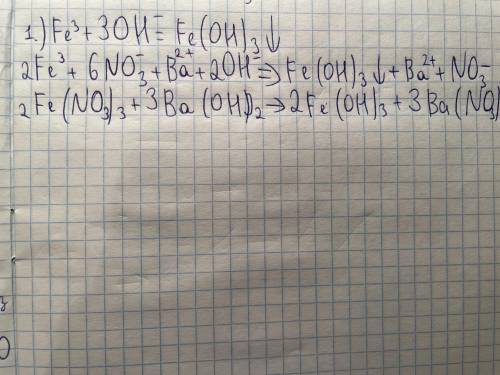 1.) Fe³ + 3OH⁻ = Fe(OH)₃↓
2Fe³ + 6NO₃⁻ + Ba²⁺ + 2OH⁻ => Fe(OH)₃↓ + Ba²⁺ + NO₃⁻
2Fe(NO₃)₃ + 3Ba(OH)₂ → 2Fe(OH)₃ + 3Ba(NO₃)